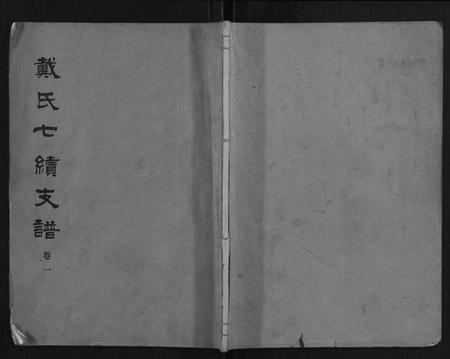 戴氏七續支譜卷一